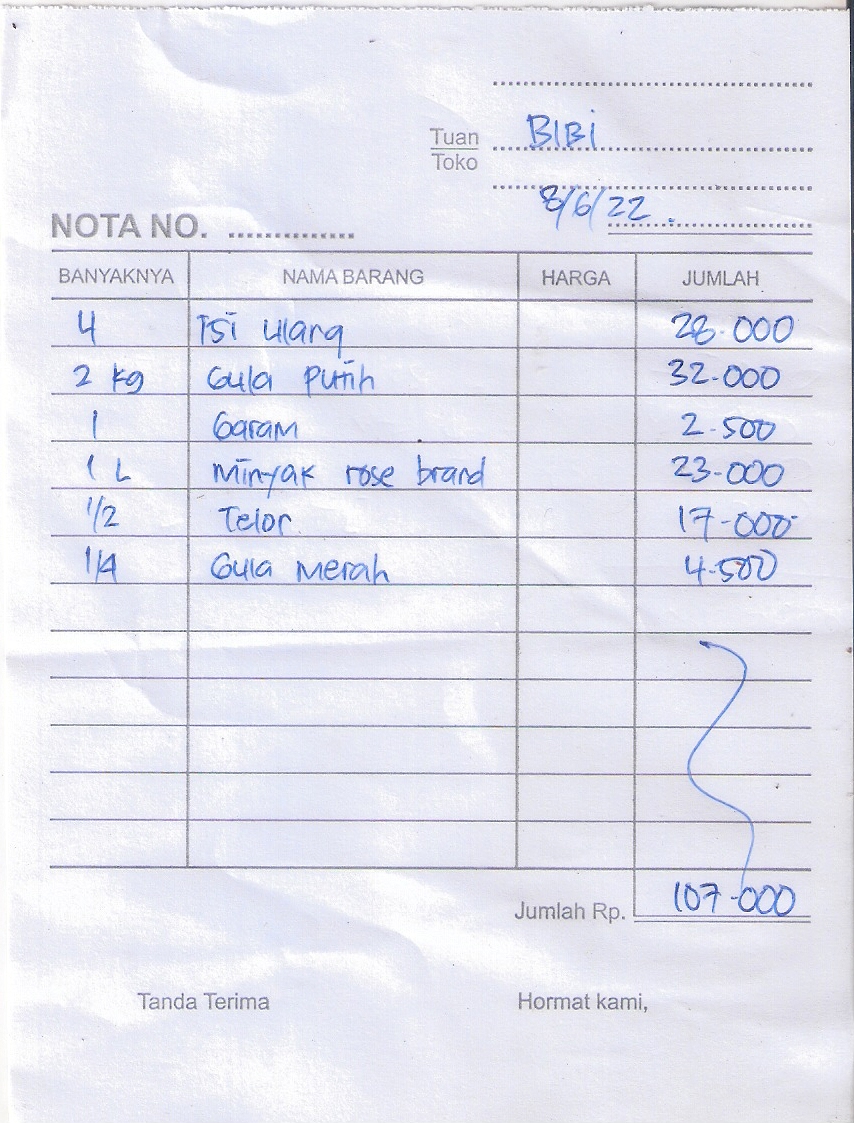 Tuan BIBI
Toko
8/6/22.
NOTA NO. ..............
BANYAKNYA NAMA BARANG HARGA JUMLAH
4 isi ulang 28.000
2 kg Gula Putih 32.000
1 Garam 2.500
1 L Minyak rose brand 23.000
1/2 Telor 17.000
1/4 Gula Merah 4.500
Jumlah Rp. 107.000
Tanda Terima Hormat kami,